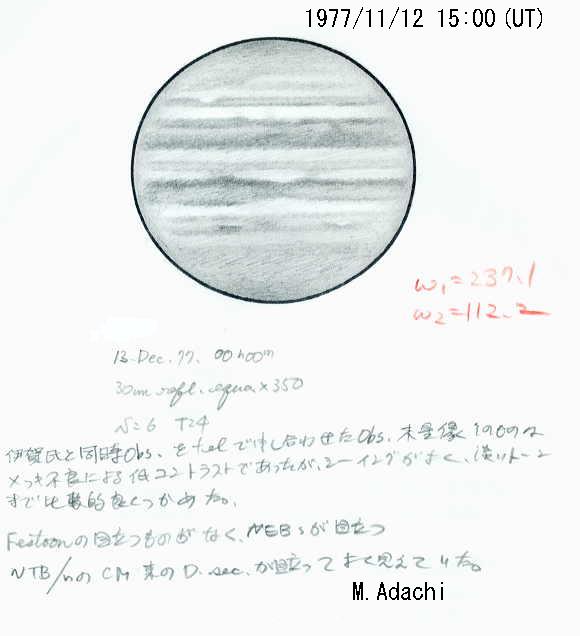 1977/11/12 15:00 (UT)
ω1=237.1
ω2=112.2
13. Dec. 77. 00h00m
30cm refl. equa. ×350
S=6 T=4
伊賀氏と同時Obs. をtelで申し合わせたObs. 木星像そのものは
メッキ不良による低コントラストであったが、シーイングがよく、淡いトーン
まで比較的良くつかめた。
Festoonの目立つものがなく、NEBsが目立つ
NTB/nのCM 東のD. sec. が目立ってよく見えていた。
M.Adachi